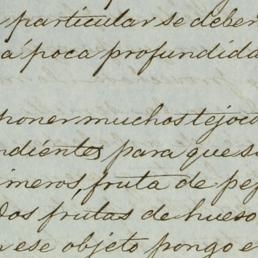 particular se deber
á poca profundida
poner muchos tejoco
ndientes para que s
imeros, fruta de pe
dos frutas de hueso
ese objeto pongo e